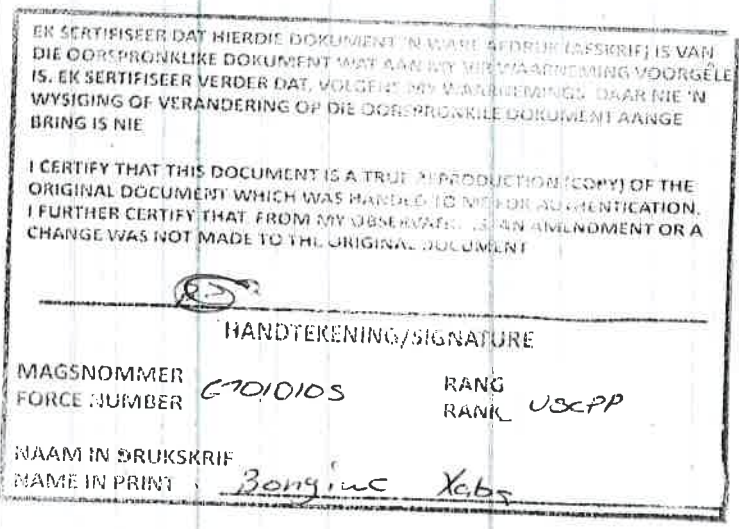 EK SERTIFISEER DAT HIERDIE DOKUMENT 'N WARE AFDRUK (AFSKRIF) IS VAN
DIE OORSPRONKLIKE DOKUMENT WAT AAN MY VIR WAARNEMING VOORGELÊ
IS. EK SERTIFISEER VERDER DAT, VOLGENS MY WAARNEMINGS, DAAR NIE 'N
WYSIGING OF VERANDERING OP DIE OORSPRONKILE DOKUMENT AANGE
BRING IS NIE
I CERTIFY THAT THIS DOCUMENT IS A TRUE REPRODUCTION (COPY) OF THE
ORIGINAL DOCUMENT WHICH WAS HANDED TO ME FOR AUTHENTICATION.
I FURTHER CERTIFY THAT, FROM MY OBSERVATIONS, AN AMENDMENT OR A
CHANGE WAS NOT MADE TO THE ORIGINAL DOCUMENT
HANDTEKENING/SIGNATURE
MAGSNOMMER
FORCE NUMBER 0101
RANG
RANK
NAAM IN DRUKSKRIF
NAME IN PRINT